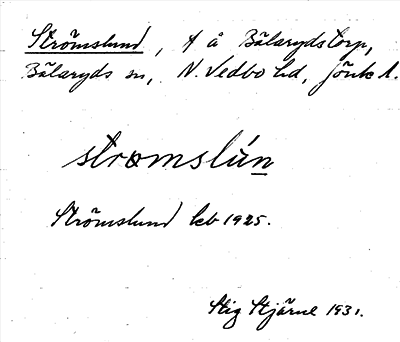 Strömslund, t å Bälarydstorp,
Bälaryds sn, N. Vedbo hd, Jönk l.
strømslún
Strömslund kb 1925.
Stig Stjärne 1931.